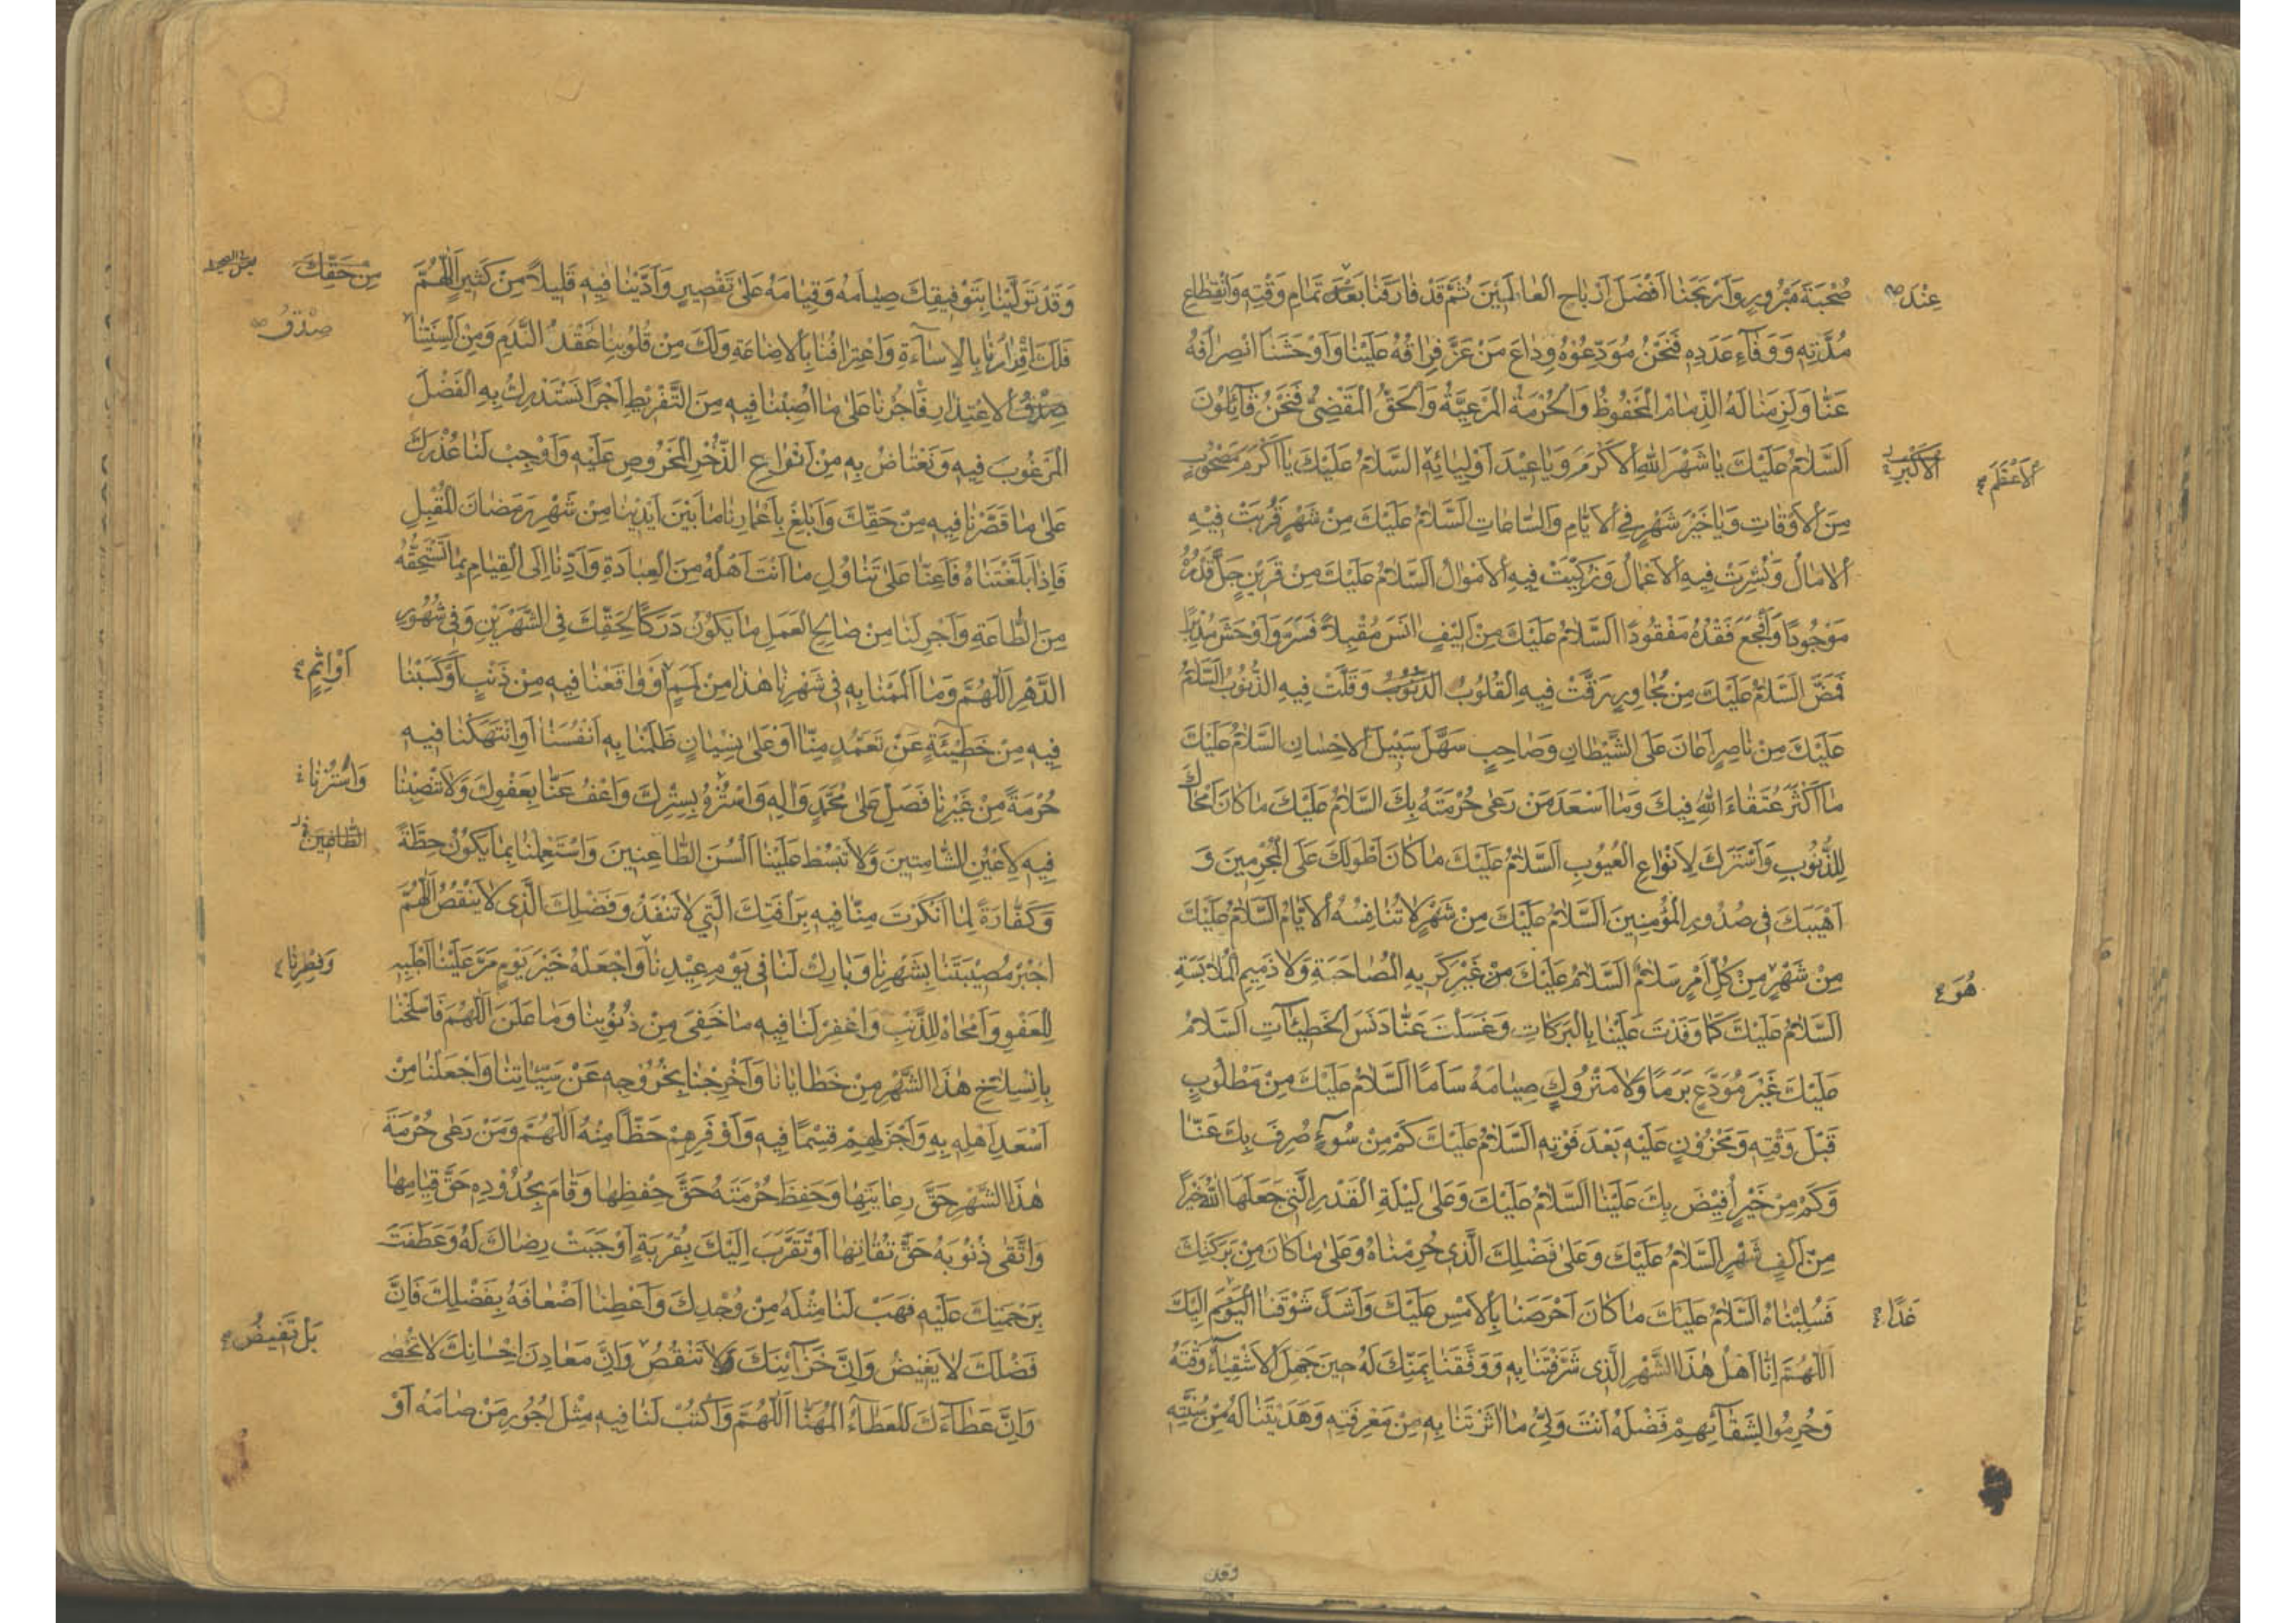 صُحْبَةَ مَبْرُورٍ وَاَرْبَحَنٰا اَفْضَلَ اَرْبٰاحِ الْعٰالَمٖينَ ثُمَّ قَدْ فٰارَقَنٰا بَعْدَ تَمٰامِ وَقْتِهِ وَانْقِطٰاعِ
عِنْدَ
مُدَّتِهِ وَوَفٰآءِ عَدَدِهِ فَنَحْنُ مُوَدِّعُوْهُ وِدٰاعَ مَنْ عَزَّ فِرٰاقُهُ عَلَيْنٰا وَاَوْحَشَنٰا انْصِرٰافُهُ
عَنّٰا وَلَزِمَنٰا لَهُ الذِّمٰامُ الْمَحْفُوظُ وَالْحُرْمَةُ الْمَرْعِيَّةُ وَالْحَقُّ الْمَقْضِيُّ فَنَحْنُ قٰآئِلُونَ
اَلسَّلٰامُ عَلَيْكَ يٰا شَهْرَ اللّٰهِ الْاَكْرَمَ وَيٰا عٖيْدَ اَوْلِيٰائِهِ السَّلٰامُ عَلَيْكَ يٰا اَكْرَمَ مَصْحُوبٍ
الْاَكْبَرِ
الْاَعْظَمَ
مِنَ الْاَوْقٰاتِ وَيٰا خَيْرَ شَهْرٍ فِي الْاَيّٰامِ وَالسّٰاعٰاتِ اَلسَّلٰامُ عَلَيْكَ مِنْ شَهْرٍ قَرُبَتْ فٖيْهِ
الْاٰمٰالُ وَنُشِرَتْ فٖيهِ الْاَعْمٰالُ وَزُكِّيَتْ فٖيهِ الْاَمْوٰالُ اَلسَّلٰامُ عَلَيْكَ مِنْ قَرٖينٍ جَلَّ قَدْرُهُ
مَوْجُودًا وَاَفْجَعَ فَقْدُهُ مَفْقُودًا اَلسَّلٰامُ عَلَيْكَ مِنْ اَلٖيْفٍ اٰنَسَ مُقْبِلًا فَسَرَّ وَاَوْحَشَ مُدْبِرًا
فَمَضَّ اَلسَّلٰامُ عَلَيْكَ مِنْ مُجٰاوِرٍ رَقَّتْ فٖيهِ الْقُلُوبُ وَقَلَّتْ فٖيهِ الذُّنُوبُ اَلسَّلٰامُ
عَلَيْكَ مِنْ نٰاصِرٍ اَعٰانَ عَلَى الشَّيْطٰانِ وَصٰاحِبٍ سَهَّلَ سَبٖيلَ الْاِحْسٰانِ السَّلٰامُ عَلَيْكَ
مٰا اَكْثَرَ عُتَقٰاءَ اللّٰهِ فٖيكَ وَمٰا اَسْعَدَ مَنْ رَعٰى حُرْمَتَهُ بِكَ السَّلٰامُ عَلَيْكَ مٰا كٰانَ اَمْحٰاكَ
لِلذُّنُوبِ وَاَسْتَرَكَ لِاَنْوٰاعِ الْعُيُوبِ اَلسَّلٰامُ عَلَيْكَ مٰا كٰانَ اَطْوَلَكَ عَلَى الْمُجْرِمٖينَ وَ
اَهْيَبَكَ فٖى صُدُورِ الْمُؤْمِنٖينَ اَلسَّلٰامُ عَلَيْكَ مِنْ شَهْرٍ لٰا تُنٰافِسُهُ الْاَيّٰامُ اَلسَّلٰامُ عَلَيْكَ
مِنْ شَهْرٍ مِنْ كُلِّ اَمْرٍ سَلٰامٌ اَلسَّلٰامُ عَلَيْكَ مِنْ غَيْرِ كَرٖيهِ الْمُصٰاحَبَةِ وَلٰا ذَمٖيمِ الْمُلٰابَسَةِ
هُوَ
اَلسَّلٰامُ عَلَيْكَ كَمٰا وَفَدْتَ عَلَيْنٰا بِالْبَرَكٰاتِ وَغَسَلْتَ عَنّٰا دَنَسَ الْخَطٖيئٰآتِ اَلسَّلٰامُ
عَلَيْكَ غَيْرَ مُوَدَّعٍ بَرَمًا وَلٰا مَتْرُوكٍ صِيٰامُهُ سَأَمًا اَلسَّلٰامُ عَلَيْكَ مِنْ مَطْلُوبٍ
قَبْلَ وَقْتِهِ وَمَحْزُوْنٍ عَلَيْهِ بَعْدَ فَوْتِهِ السَّلٰامُ عَلَيْكَ كَمْ مِنْ سُوٓءٍ صُرِفَ بِكَ عَنّٰا
وَكَمْ مِنْ خَيْرٍ اُفٖيْضَ بِكَ عَلَيْنٰا اَلسَّلٰامُ عَلَيْكَ وَعَلٰى لَيْلَةِ الْقَدْرِ الَّتٖي جَعَلَهَا اللّٰهُ خَيْرًا
مِنْ اَلْفِ شَهْرٍ اَلسَّلٰامُ عَلَيْكَ وَعَلٰى فَضْلِكَ الَّذٖي حُرِمْنٰاهُ وَعَلٰى مٰا كٰانَ مِنْ بَرَكٰتِكَ
فَسُلِبْنٰاهُ اَلسَّلٰامُ عَلَيْكَ مٰا كٰانَ اَحْرَصَنٰا بِالْاَمْسِ عَلَيْكَ وَاَشَدَّ شَوْقَنٰا الْيَوْمَ اِلَيْكَ
غَدًا
اَللّٰهُمَّ اِنّٰا اَهْلُ هٰذَا الشَّهْرِ الَّذٖى شَرَّفْتَنٰا بِهِ وَوَفَّقْتَنٰا بِمَنِّكَ لَهُ حٖينَ جَهِلَ الْاَشْقِيٰآءُ وَقْتَهُ
وَحُرِمُوا لِشَقٰآئِهِمْ فَضْلَهُ اَنْتَ وَلِيُّ مٰا اٰثَرْتَنٰا بِهِ مِنْ مَعْرِفَتِهِ وَهَدَيْتَنٰا لَهُ مِنْ سُنَّتِهِ
وقد
وَقَدْ تَوَلَّيْنٰا بِتَوْفٖيقِكَ صِيٰامَهُ وَقِيٰامَهُ عَلٰى تَقْصٖيرٍ وَاَدَّيْنٰا فٖيهِ قَلٖيلًا مِنْ كَثٖيرٍ اَللّٰهُمَّ
مِنْ حَقِّكَ
فَلَكَ اِقْرٰارُنٰا بِالْاِسٰآءَةِ وَاعْتِرٰافُنٰا بِالْاِضٰاعَةِ وَلَكَ مِنْ قُلُوبِنٰا عَقْدُ النَّدَمِ وَمِنْ اَلْسِنَتِنٰا
صِدْقُ
صِدْقُ الْاِعْتِذٰارِ فَاْجُرْنٰا عَلٰى مٰا اُصِبْنٰا فٖيهِ مِنَ التَّفْرٖيطِ اَجْرًا نَسْتَدْرِكُ بِهِ الْفَضْلَ
الْمَرْغُوبَ فٖيهِ وَنَعْتٰاضُ بِهِ مِنْ اَنْوٰاعِ الذُّخْرِ الْمَحْرُوصِ عَلَيْهِ وَاَوْجِبْ لَنٰا عُذْرَكَ
عَلٰى مٰا قَصَّرْنٰا فٖيهِ مِنْ حَقِّكَ وَابْلُغْ بِاَعْمٰارِنٰا مٰا بَيْنَ اَيْدٖينٰا مِنْ شَهْرِ رَمَضٰانَ الْمُقْبِلِ
فَاِذٰا بَلَّغْتَنٰاهُ فَاَعِنّٰا عَلٰى تَنٰاوُلِ مٰا اَنْتَ اَهْلُهُ مِنَ الْعِبٰادَةِ وَاَدِّنٰا اِلَى الْقِيٰامِ بِمٰا تَسْتَحِقُّهُ
مِنَ الطّٰاعَةِ وَاَجْرِ لَنٰا مِنْ صٰالِحِ الْعَمَلِ مٰا يَكُوْنُ دَرَكًا لِحَقِّكَ فِى الشَّهْرَيْنِ وَفٖى شُهُورِ
الدَّهْرِ اَللّٰهُمَّ وَمٰا اَلْمَمْنٰا بِهِ فٖى شَهْرِنٰا هٰذٰا مِنْ لَمَمٍ اَوْ وٰاقَعْنٰا فٖيهِ مِنْ ذَنْبٍ اَوْ كَسَبْنٰا
اَوْ اِثْمٍ
فٖيهِ مِنْ خَطٖيٓئَةٍ عَنْ تَعَمُّدٍ مِنّٰا اَوْ عَلٰى نِسْيٰانٍ ظَلَمْنٰا بِهِ اَنْفُسَنٰا اَوِ انْتَهَكْنٰا فٖيهِ
حُرْمَةً مِنْ غَيْرِنٰا فَصَلِّ عَلٰى مُحَمَّدٍ وَاٰلِهِ وَاسْتُرْهُ بِسِتْرِكَ وَاعْفُ عَنّٰا بِعَفْوِكَ وَلٰا تَنْصِبْنٰا
وَاسْتُرْنٰا
فٖيهِ لِاَعْيُنِ الشّٰامِتٖينَ وَلٰا تَبْسُطْ عَلَيْنٰا اَلْسُنَ الطّٰاعِنٖينَ وَاسْتَعْمِلْنٰا بِمٰا يَكُوْنُ حِطَّةً
وَكَفّٰارَةً لِمٰا اَنْكَرْتَ مِنّٰا فٖيهِ بِرَأْفَتِكَ الَّتٖي لٰا تَنْفَدُ وَفَضْلِكَ الَّذٖى لٰا يَنْقُصُ اَللّٰهُمَّ
اجْبُرْ مُصٖيبَتَنٰا بِشَهْرِنٰا وَبٰارِكْ لَنٰا فٖى يَوْمِ عٖيْدِنٰا وَاجْعَلْهُ خَيْرَ يَوْمٍ مَرَّ عَلَيْنٰا اَجْلَبِهِ
وَفِطْرِنٰا
لِلْعَفْوِ وَاَمْحٰاهُ لِلذَّنْبِ وَاغْفِرْ لَنٰا فٖيهِ مٰا خَفِيَ مِنْ ذُنُوْبِنٰا وَمٰا عَلَنَ اَللّٰهُمَّ فَاسْلَخْنٰا
بِانْسِلٰاخِ هٰذَا الشَّهْرِ مِنْ خَطٰايٰانٰا وَاَخْرِجْنٰا بِخُرُوْجِهِ عَنْ سَيِّئٰاتِنٰا وَاجْعَلْنٰا مِنْ
اَسْعَدِ اَهْلِهِ بِهِ وَاَجْزَلِهِمْ قِسْمًا فٖيهِ وَاَوْفَرِهِمْ حَظًّا مِنْهُ اَللّٰهُمَّ وَمَنْ رَعٰى حُرْمَةَ
هٰذَا الشَّهْرِ حَقَّ رِعٰايَتِهٰا وَحَفِظَ حُرْمَتَهُ حَقَّ حِفْظِهٰا وَقٰامَ بِحُدُوْدِهِ حَقَّ قِيٰامِهٰا
وَاتَّقٰى ذُنُوْبَهُ حَقَّ تُقٰاتِهٰا اَوْ تَقَرَّبَ اِلَيْكَ بِقُرْبَةٍ اَوْجَبَتْ رِضٰاكَ لَهُ وَعَطَفَتْ
بِرَحْمَتِكَ عَلَيْهِ فَهَبْ لَنٰا مِثْلَهُ مِنْ وُجْدِكَ وَاَعْطِنٰا اَضْعٰافَهُ بِفَضْلِكَ فَاِنَّ
فَضْلَكَ لٰا يَغٖيضُ وَاِنَّ خَزٰآئِنَكَ لٰا تَنْقُصُ وَاِنَّ مَعٰادِنَ اِحْسٰانِكَ لٰا تُحْصٰى
بَلْ تَفٖيضُ
وَاِنَّ عَطٰآءَكَ لَلْعَطٰآءُ الْمُهَنّٰا اَللّٰهُمَّ وَاكْتُبْ لَنٰا فٖيهِ مِثْلَ اُجُورِ مَنْ صٰامَهُ اَوْ